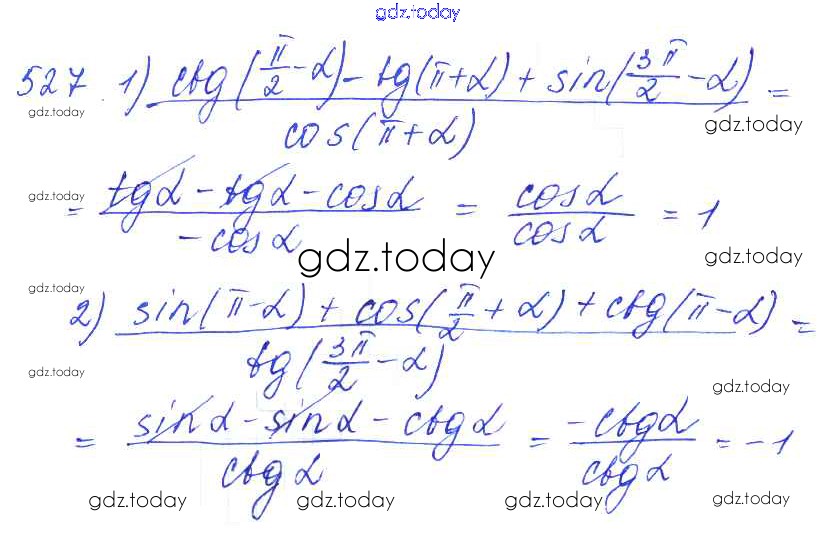 gdz.today
527. 1) (ctg(π/2 - α) - tg(π + α) + sin(3π/2 - α)) / cos(π + α) =
gdz.today gdz.today
= (tgα - tgα - cosα) / (-cosα) = cosα / cosα = 1
gdz.today gdz.today gdz.today
2) (sin(π - α) + cos(π/2 + α) + ctg(π - α)) / tg(3π/2 - α) =
gdz.today gdz.today gdz.today
= (sinα - sinα - ctgα) / ctgα = -ctgα / ctgα = -1
gdz.today gdz.today gdz.today gdz.today